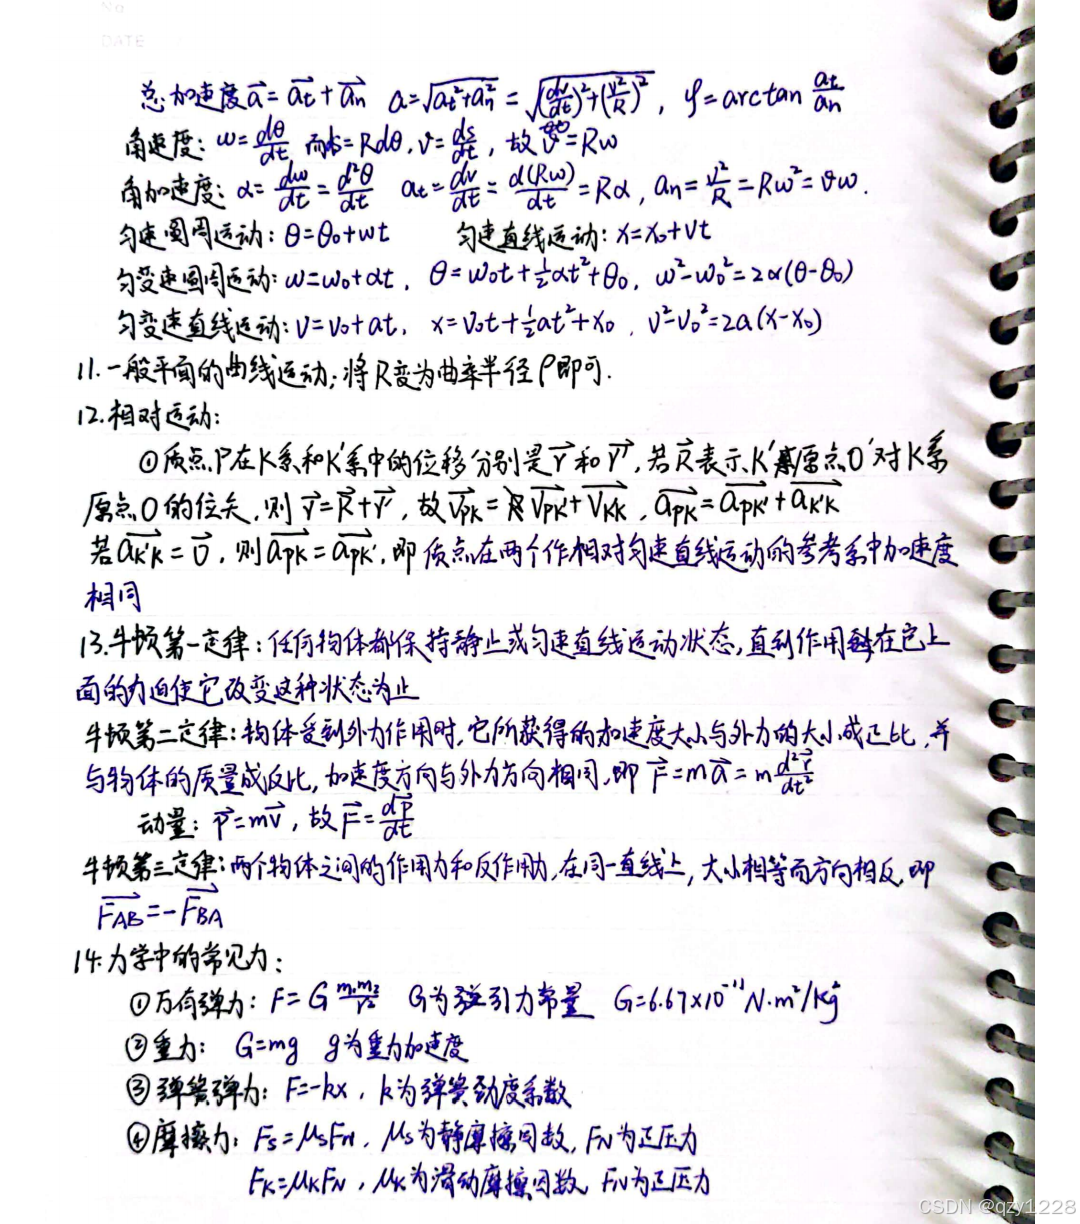 No
DATE
总加速度a⃗=a⃗t+a⃗n a=√(at²+an²)=√((dv/dt)²+(v²/R)²), φ=arctan at/an
角速度: ω=dθ/dt 而ds=Rdθ, v=ds/dt, 故v=Rω
角加速度: α=dω/dt=d²θ/dt at=dv/dt=d(Rω)/dt=Rα, an=v²/R=Rω²=vω.
匀速圆周运动: θ=θ0+ωt 匀速直线运动: x=x0+vt
匀变速圆周运动: ω=ω0+αt, θ=ω0t+½αt²+θ0, ω²-ω0²=2α(θ-θ0)
匀变速直线运动: v=v0+at, x=v0t+½at²+x0, v²-v0²=2a(x-x0)
11.一般平面的曲线运动;将R变为曲率半径ρ即可.
12.相对运动:
①质点P在K系和K'系中的位移分别是r⃗和r⃗', 若R⃗表示K'系原点O'对K系
原点O的位矢, 则r⃗=R⃗+r⃗', 故v⃗PK=v⃗PK'+v⃗KK, a⃗PK=a⃗PK'+a⃗K'K
若a⃗K'K=0⃗, 则a⃗PK=a⃗PK', 即质点在两个作相对匀速直线运动的参考系中加速度
相同
13.牛顿第一定律: 任何物体都保持静止或匀速直线运动状态,直到作用在它上
面的力迫使它改变这种状态为止
牛顿第二定律: 物体受到外力作用时,它所获得的加速度大小与外力的大小成正比,并
与物体的质量成反比,加速度方向与外力方向相同,即 F⃗=ma⃗=m d²r⃗/dt²
动量: p⃗=mv⃗, 故F⃗=dp⃗/dt
牛顿第三定律: 两个物体之间的作用力和反作用力,在同一直线上,大小相等而方向相反,即
F⃗AB=-F⃗BA
14.力学中的常见力:
①万有弹力: F=G m1m2/r² G为引力常量 G=6.67×10⁻¹¹N·m²/kg²
②重力: G=mg g为重力加速度
③弹簧弹力: F=-kx, k为弹簧劲度系数
④摩擦力: Fs=μsFN, μs为静摩擦因数, FN为正压力
FK=μKFN, μK为滑动摩擦因数, FN为正压力
CSDN @qzy1228